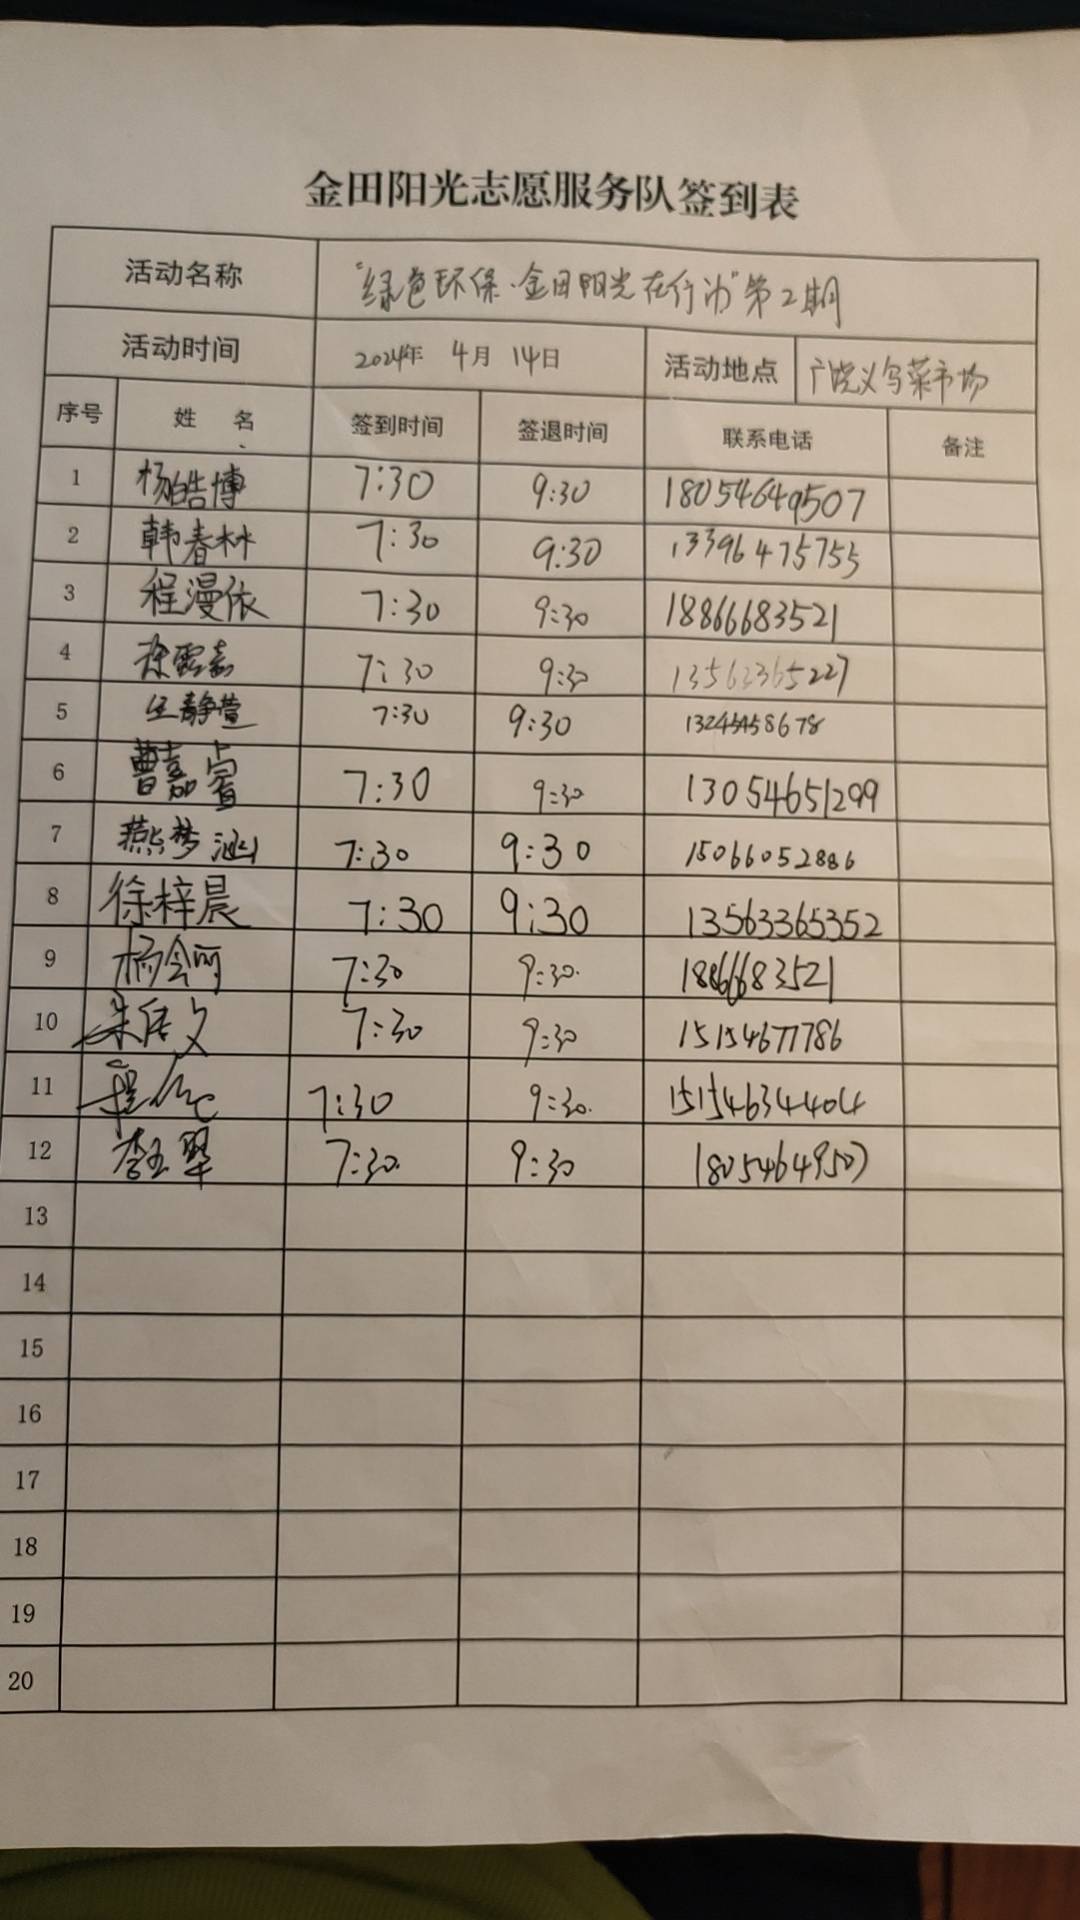 金田阳光志愿服务队签到表
活动名称 "绿色环保·金田阳光在行动"第2期
活动时间 2024年 4月 14日 活动地点 广饶义乌菜市场
序号 姓 名 签到时间 签退时间 联系电话 备注
1 杨皓博 7:30 9:30 18054649507
2 韩春林 7:30 9:30 13396475755
3 程漫依 7:30 9:30 18866683521
4 7:30 9:30 13563365227
5 王静萱 7:30 9:30
6 曹嘉睿 7:30 9:30 13054651299
7 燕梦涵 7:30 9:30 15066052886
8 徐梓晨 7:30 9:30 13563365352
9 7:30 9:30 18866683521
10 7:30 9:30 15154677786
11 7:30 9:30 15154634404
12 7:30 9:30 18054649507
13
14
15
16
17
18
19
20